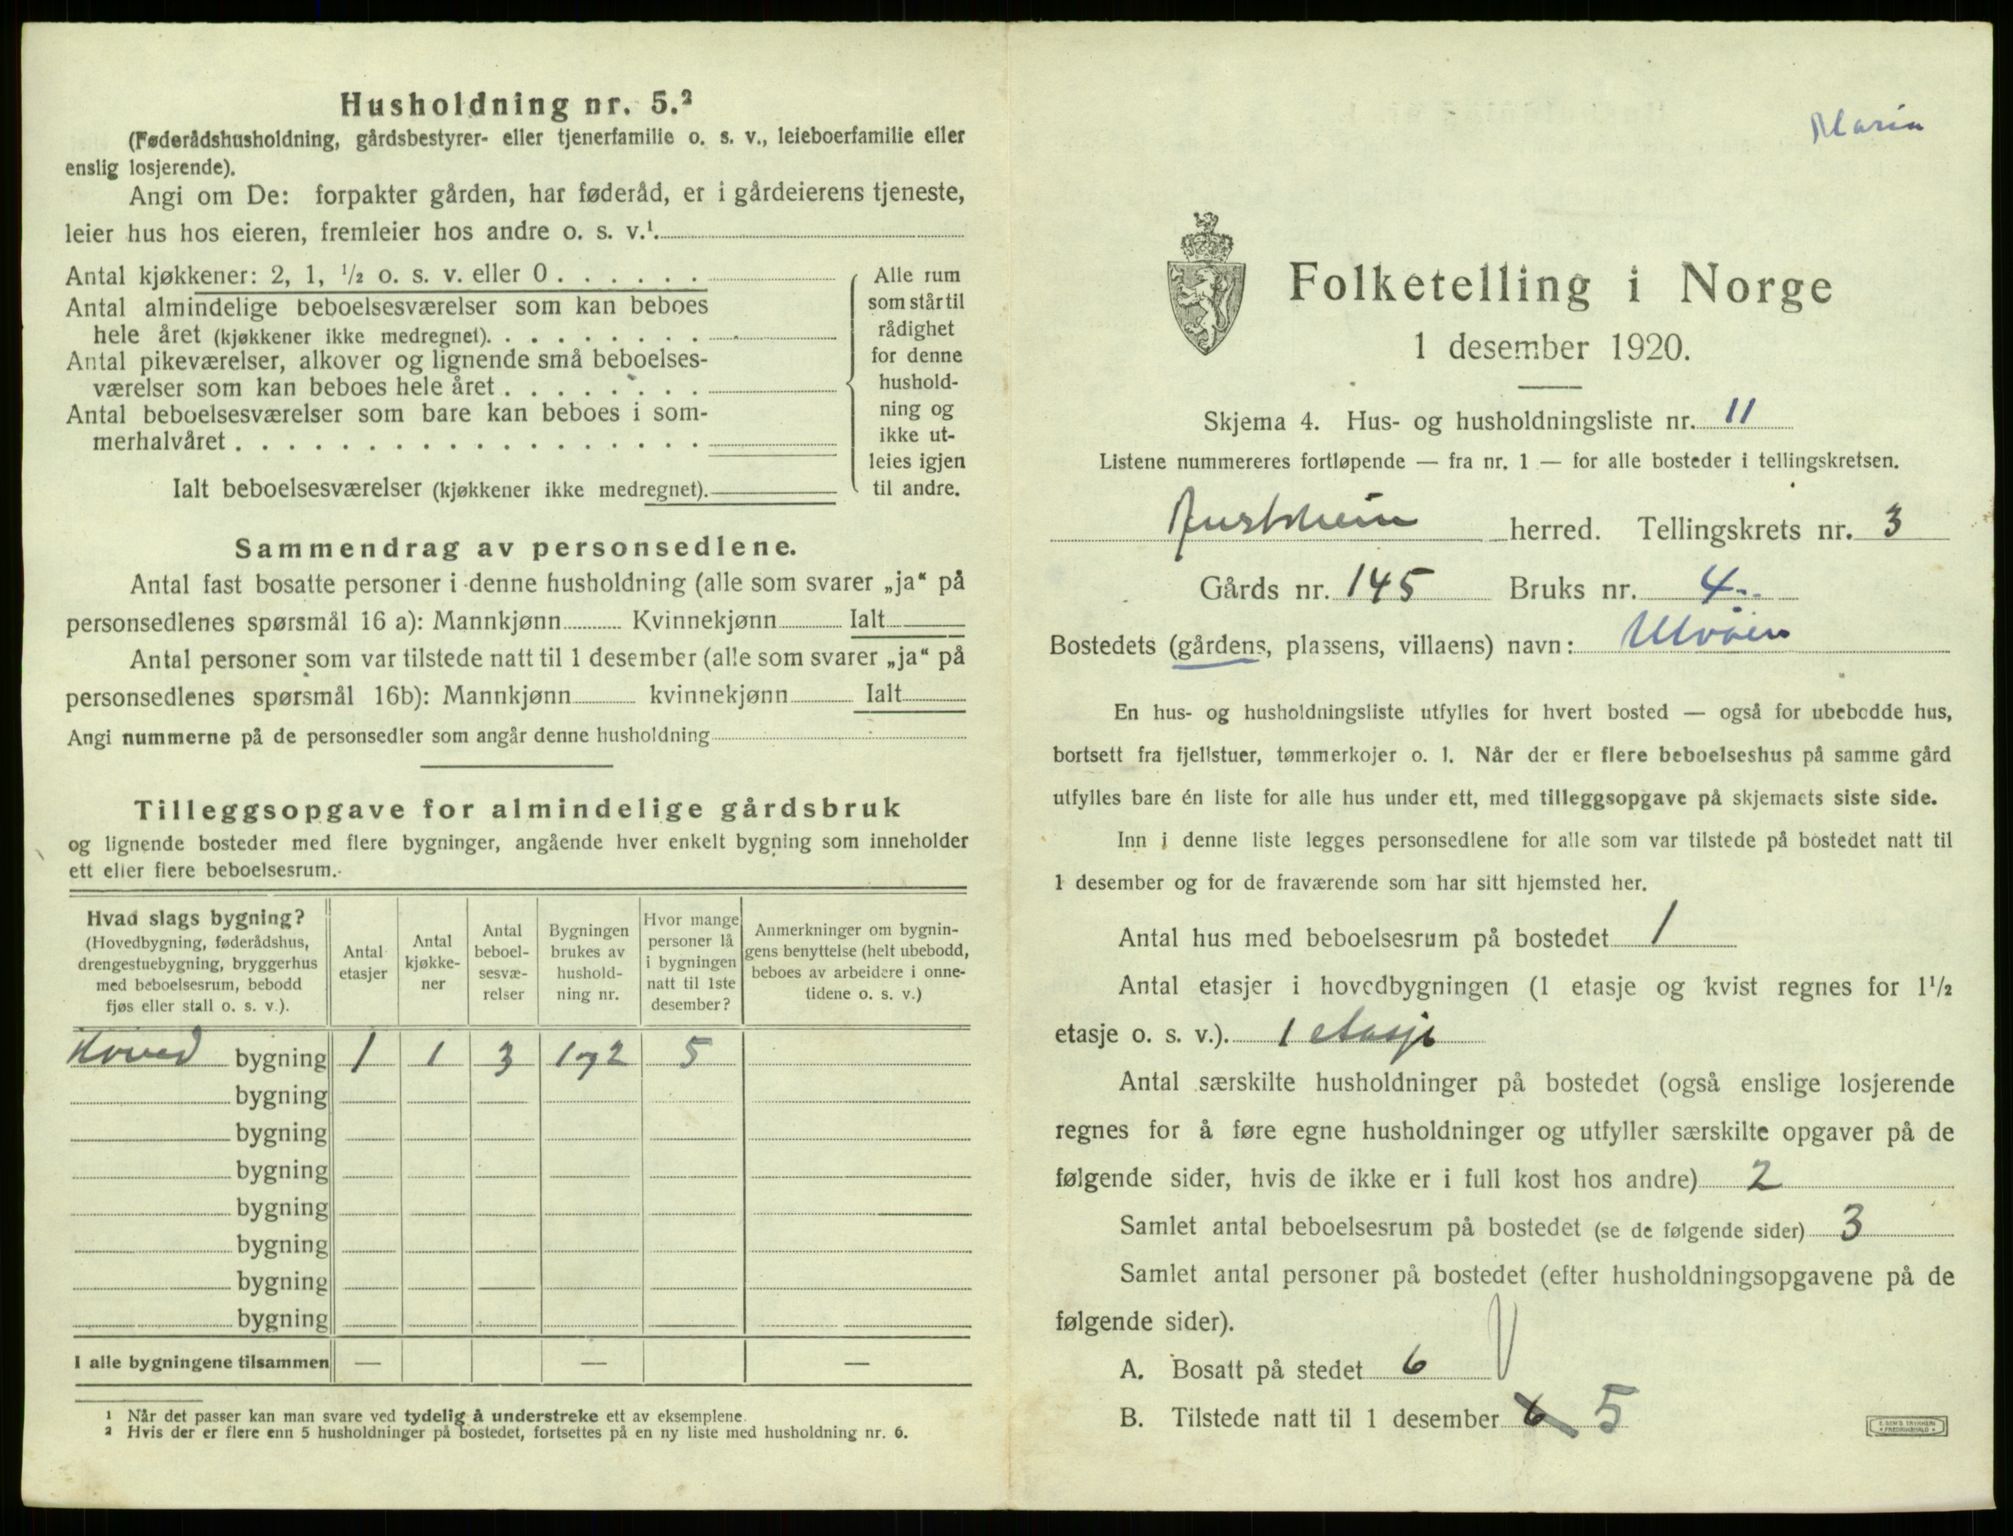 Husholdning nr. 5.²
(Føderådshusholdning, gårdsbestyrer- eller tjenerfamilie o. s. v., leieboerfamilie eller
enslig losjerende).
Angi om De: forpakter gården, har føderåd, er i gårdeierens tjeneste,
leier hus hos eieren, fremleier hos andre o. s. v.¹.
Antal kjøkkener: 2, 1, ½ o. s. v. eller 0 . . . . . .
Antal almindelige beboelsesværelser som kan beboes
hele året (kjøkkener ikke medregnet). . . . . . . . .
Antal pikeværelser, alkover og lignende små beboelses-
værelser som kan beboes hele året . . . . . . . .
Antal beboelsesværelser som bare kan beboes i som-
merhalvåret . . . . . . . . . . . . . . . . . .
Ialt beboelsesværelser (kjøkkener ikke medregnet).
Alle rum
som står til
rådighet
for denne
hushold-
ning og
ikke ut-
leies igjen
til andre.
Sammendrag av personsedlene.
Antal fast bosatte personer i denne husholdning (alle som svarer „ja“ på
personsedlenes spørsmål 16 a): Mannkjønn Kvinnekjønn Ialt
Antal personer som var tilstede natt til 1 desember (alle som svarer „ja“ på
personsedlenes spørsmål 16b): Mannkjønn kvinnekjønn Ialt
Angi nummerne på de personsedler som angår denne husholdning
Tilleggsopgave for almindelige gårdsbruk
og lignende bosteder med flere bygninger, angående hver enkelt bygning som inneholder
ett eller flere beboelsesrum.
Hvad slags bygning?
(Hovedbygning, føderådshus,
drengestuebygning, bryggerhus
med beboelsesrum, bebodd
fjøs eller stall o. s. v.).
Antal
etasjer
Antal
kjøkke-
ner
Antal
beboel-
sesvæ-
relser
Bygningen
brukes av
hushold-
ning nr.
Hvor mange
personer lå
i bygningen
natt til 1ste
desember?
Anmerkninger om bygnin-
gens benyttelse (helt ubebodd,
beboes av arbeidere i onne-
tidene o. s. v.)
Hoved bygning 1 1 3 1 og 2 5
bygning
bygning
bygning
bygning
bygning
bygning
bygning
I alle bygningene tilsammen — — —
¹ Når det passer kan man svare ved tydelig å understreke ett av eksemplene.
² Hvis der er flere enn 5 husholdninger på bostedet, fortsettes på en ny liste med husholdning nr. 6.
Maria
Folketelling i Norge
1 desember 1920.
Skjema 4. Hus- og husholdningsliste nr. 11
Listene nummereres fortløpende — fra nr. 1 — for alle bosteder i tellingskretsen.
herred. Tellingskrets nr. 3
Gårds nr. 145 Bruks nr. 4
Bostedets (gårdens, plassens, villaens) navn: Ulvøen
En hus- og husholdningsliste utfylles for hvert bosted — også for ubebodde hus,
bortsett fra fjellstuer, tømmerkojer o. l. Når der er flere beboelseshus på samme gård
utfylles bare én liste for alle hus under ett, med tilleggsopgave på skjemaets siste side.
Inn i denne liste legges personsedlene for alle som var tilstede på bostedet natt til
1 desember og for de fraværende som har sitt hjemsted her.
Antal hus med beboelsesrum på bostedet 1
Antal etasjer i hovedbygningen (1 etasje og kvist regnes for 1½
etasje o. s. v.). 1 etasje
Antal særskilte husholdninger på bostedet (også enslige losjerende
regnes for å føre egne husholdninger og utfyller særskilte opgaver på de
følgende sider, hvis de ikke er i full kost hos andre) 2
Samlet antal beboelsesrum på bostedet (se de følgende sider) 3
Samlet antal personer på bostedet (efter husholdningsopgavene på de
følgende sider).
A. Bosatt på stedet 6
B. Tilstede natt til 1 desember 6 5